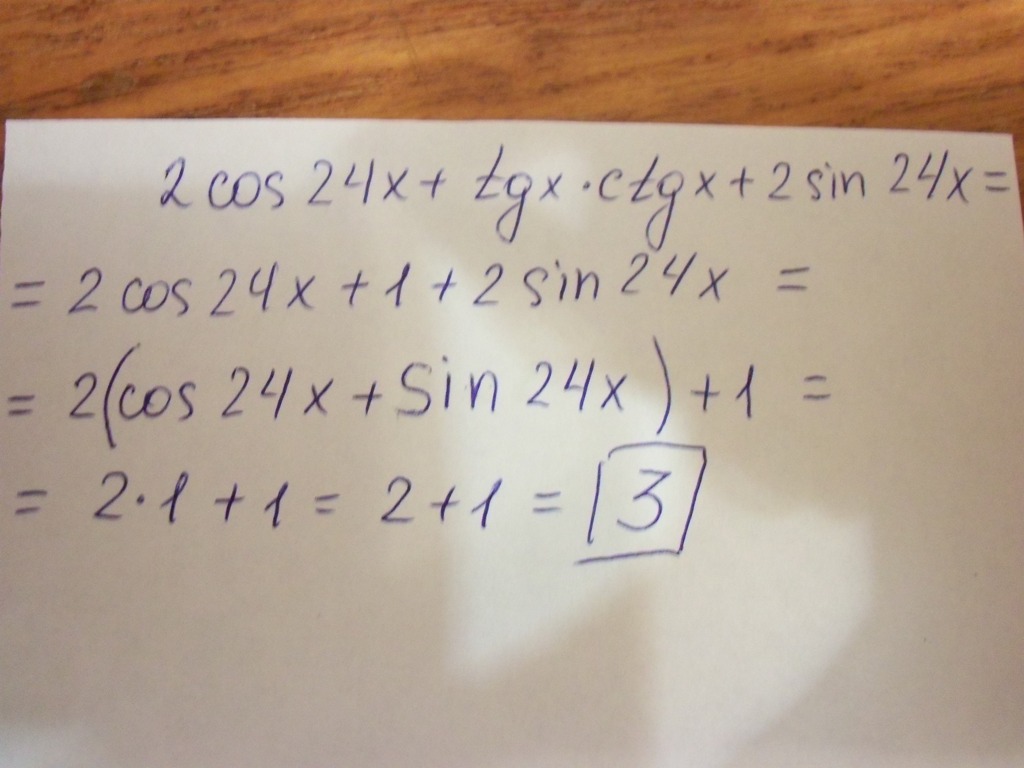 2 cos 24x + tgx · ctgx + 2 sin 24x =
= 2 cos 24x + 1 + 2 sin 24x =
= 2(cos 24x + Sin 24x) + 1 =
= 2·1 + 1 = 2 + 1 = 3